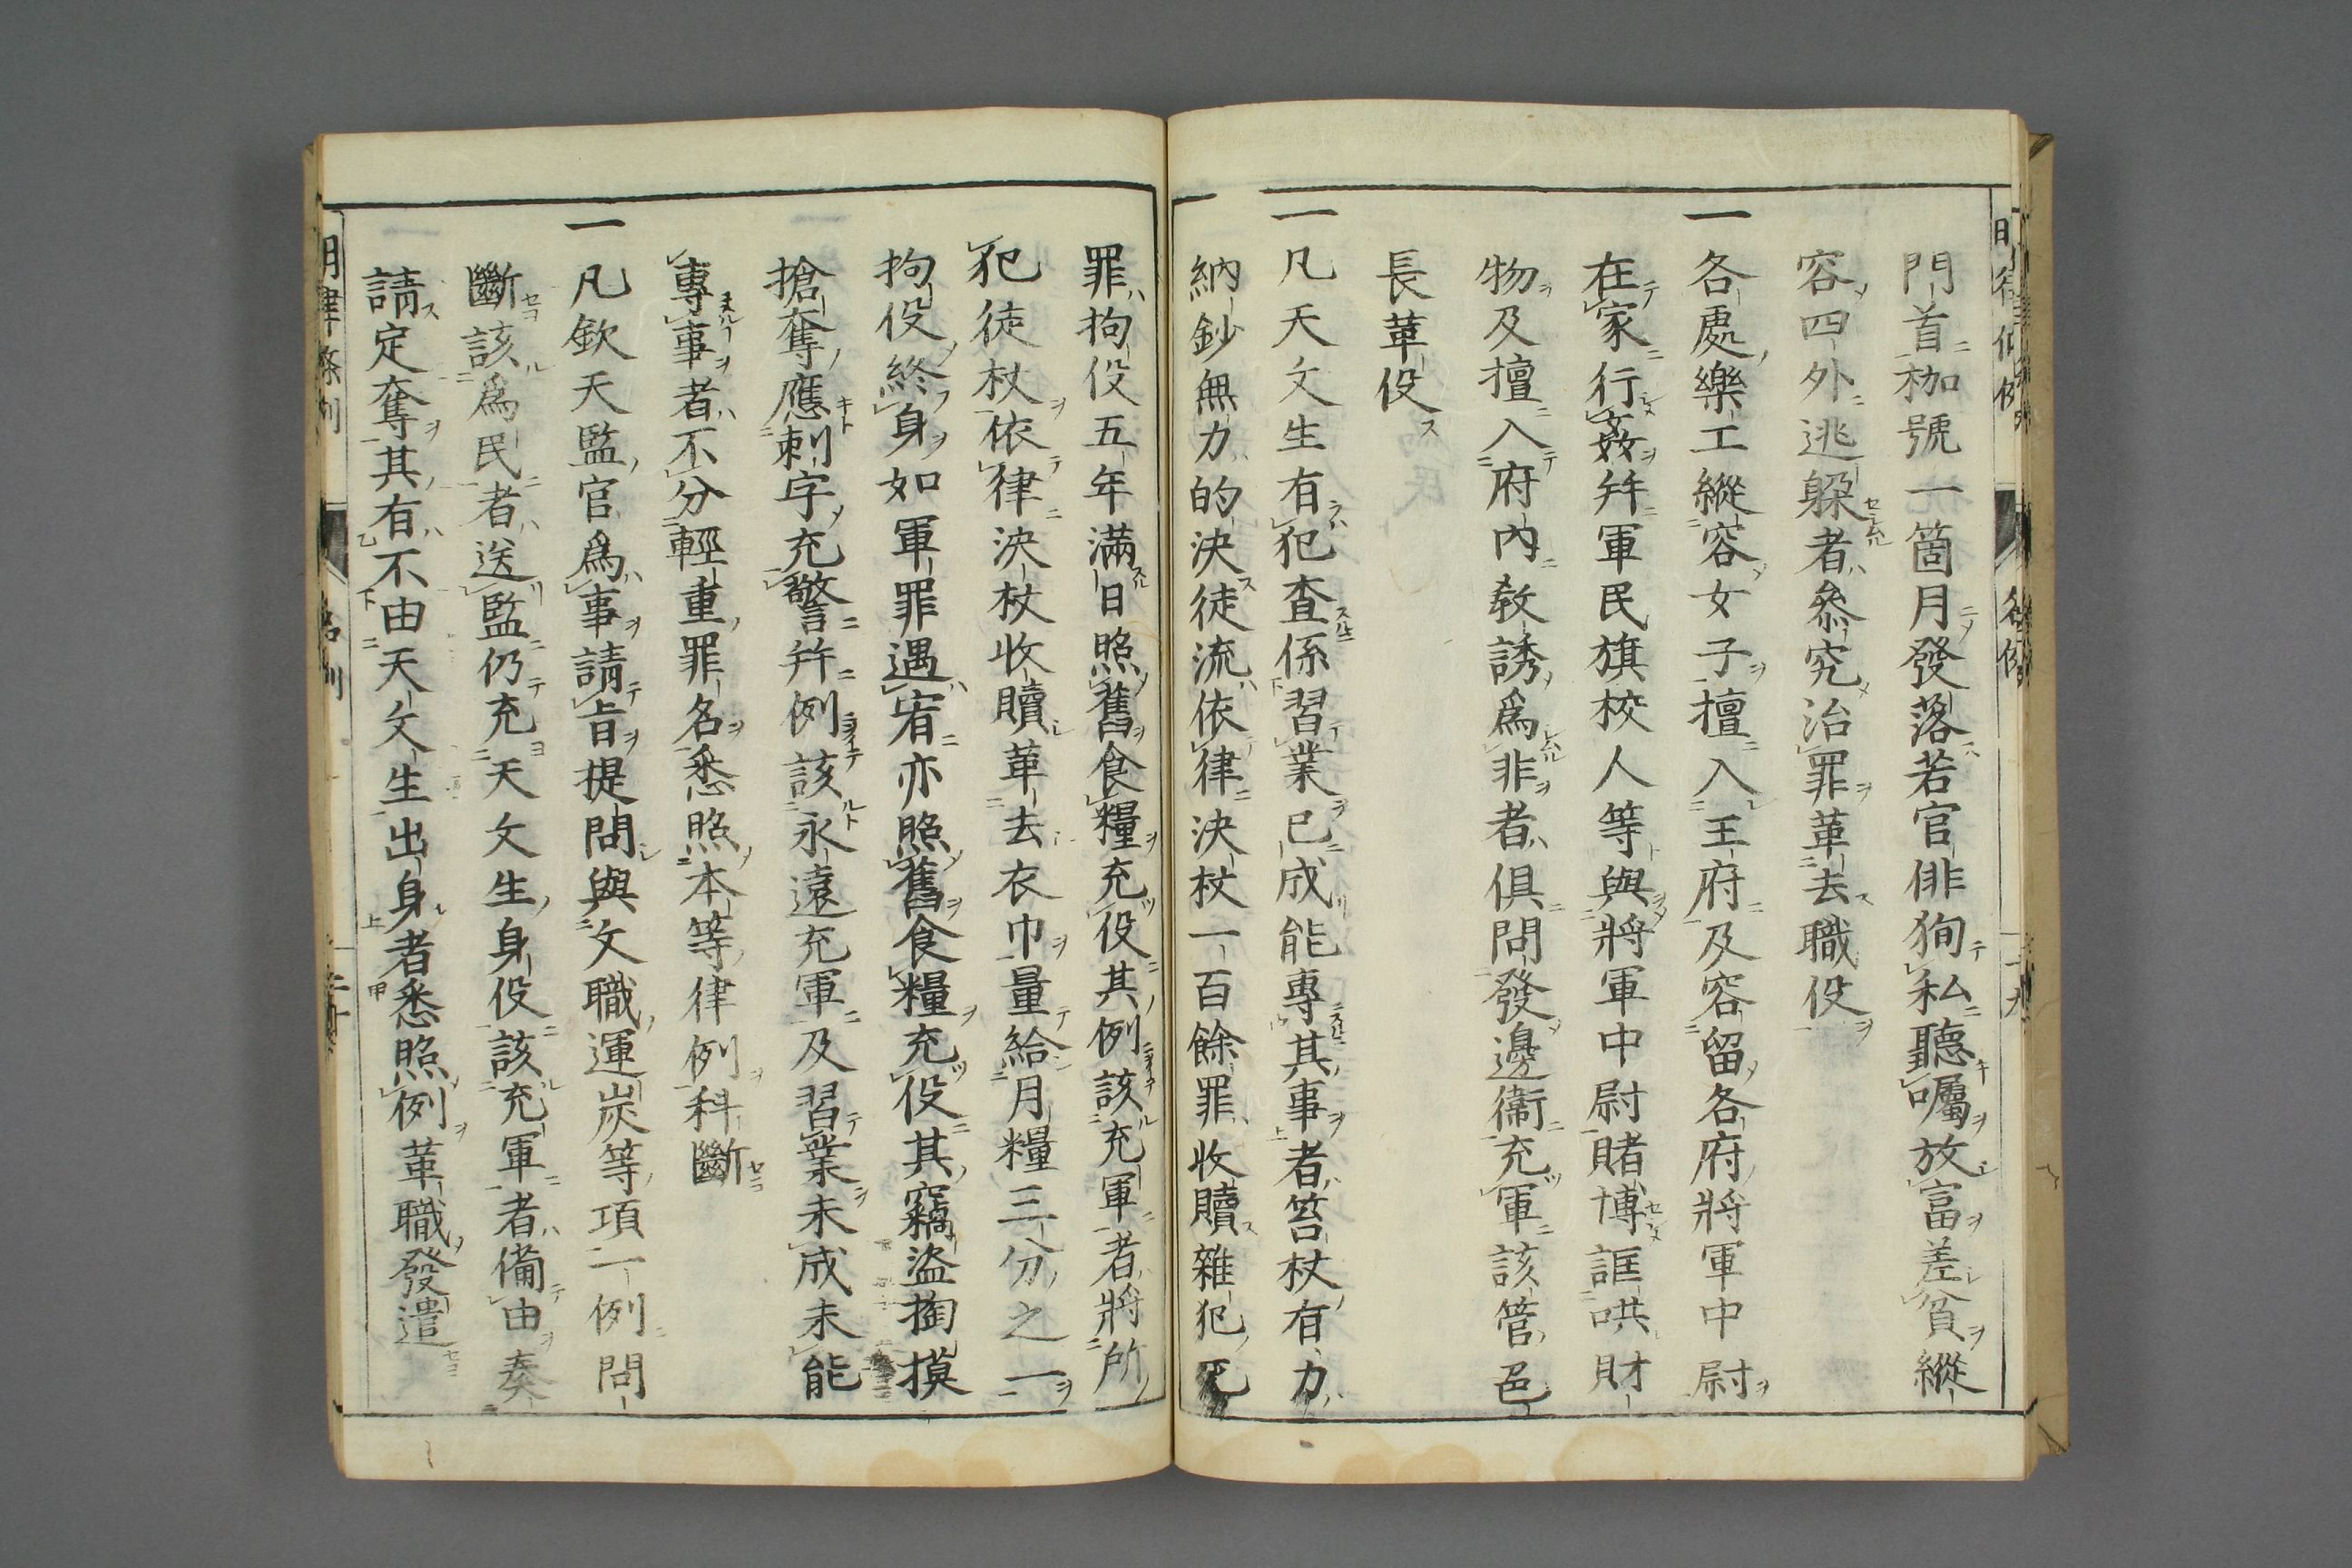 門首枷號一箇月發落若官俳狥私聽囑放富差貧縱
容四外逃躱者叅究治罪革去職役
一各處樂工縱容女子擅入王府及容留各府將軍中尉
在家行姦并軍民旗校人等與將軍中尉賭博誆哄財
物及擅入府內敎誘爲非者俱問發邊衞充軍該管邑
長革役
一凡天文生有犯查係習業已成能專其事者笞杖有力
納鈔無力的決徒流依律決杖一百餘罪收贖雜犯死
罪拘役五年滿日照舊食糧充役其例該充軍者將所
犯徒杖依律決杖收贖革去衣巾量給月糧三分之一
拘役終身如軍罪遇宥亦照舊食糧充役其竊盜掏摸
搶奪應刺字充警并例該永遠充軍及習業未成未能
專事者不分輕重罪名悉照本等律例科斷
一凡欽天監官爲事請旨提問與文職運炭等項一例問
斷該爲民者送監仍充天文生身役該充軍者備由奏
請定奪其有不由天文生出身者悉照例革職發遣
明律條例 名例